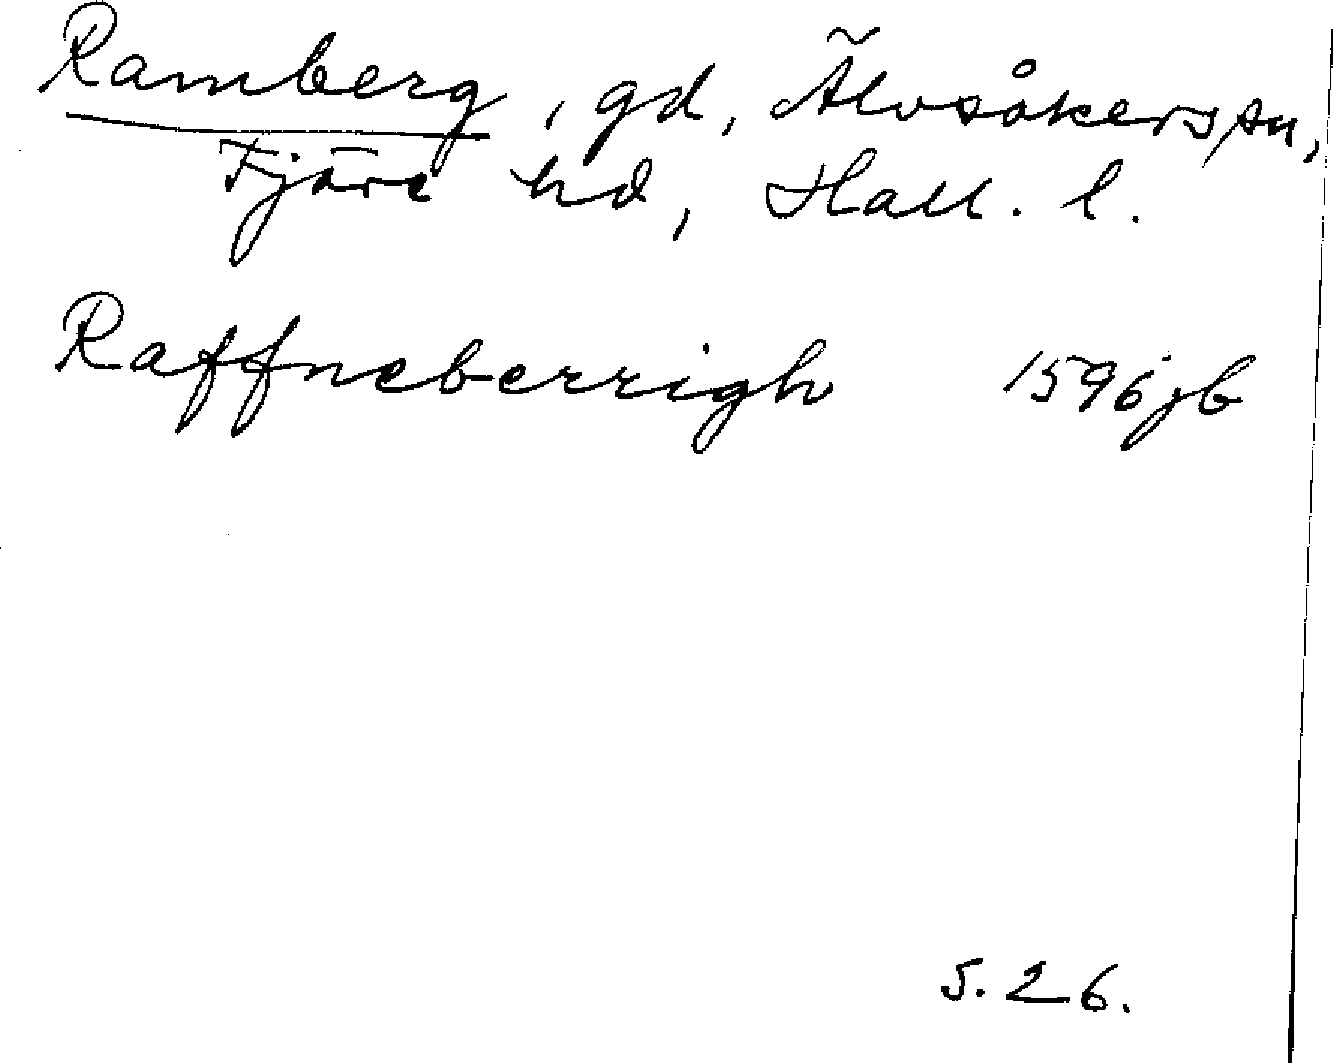 Ramberg, gd, Älvsåkers sn,
Fjäre hd, Hall. l.
Raffneberrigh 1596 jb
s. 26.